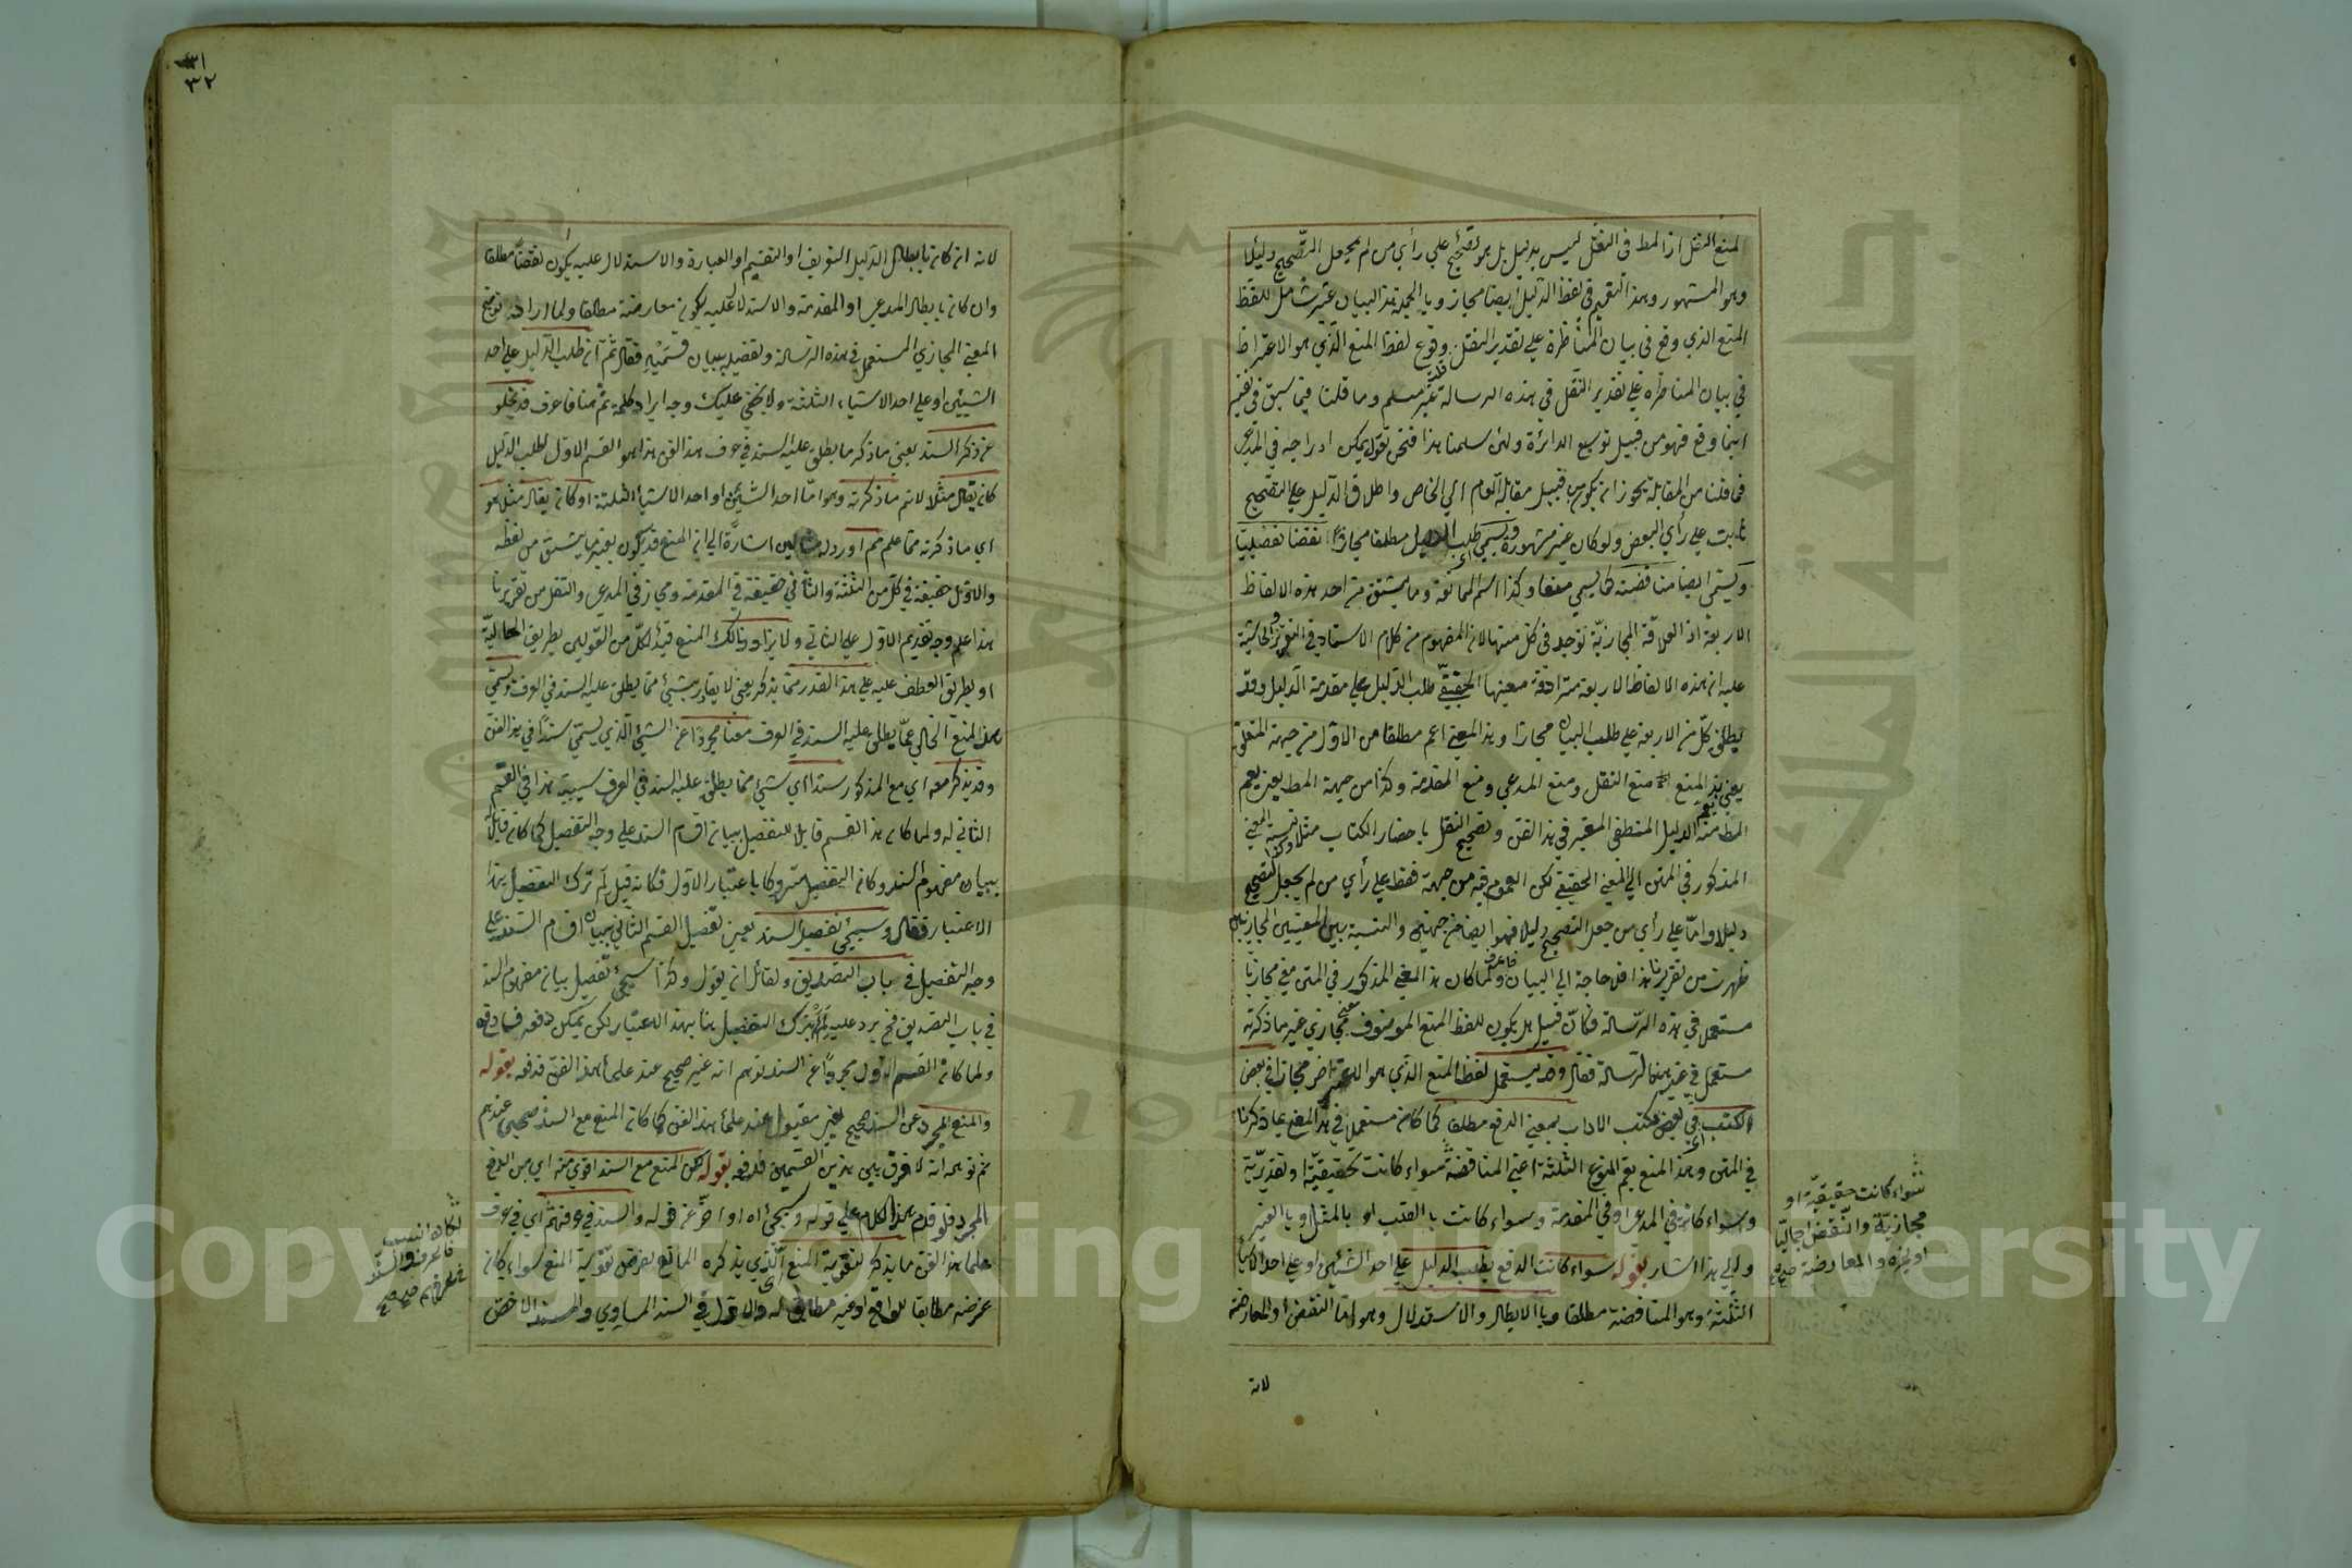 لمنع النقل اذ المط فى النقل ليس بدليل بل هو تصحيح على رأي من لم يجعل التصحيح دليلا
وهو المشهور وهذا التعميم في لفظ الدليل ايضا مجاز وبالجملة هذا البيان غير شامل للفظ
المنع الذي وقع فى بيان المناظرة على تقدير النقل وقوع لفظ المنع الذي هو الاعتراض
في بيان المناظرة على تقدير النقل في هذه الرسالة غير مسلم وما قلنا فيما سبق في
انما وقع فهو من قبيل توسيع الدائرة ولئن سلمنا هذا فنحن نقول يمكن ادراجه في المدعى
فما قلنا من المقابلة يجوز ان يكون من قبيل مقابلة العام الي الخاص واطلاق الدليل على التصحيح
ثابت على رأي البعض ولو كان غير مشهورة ويسمي طلب الدليل مطلقا مجازا نقضا تفصيليا
ويسمى ايضا مناقضة كما يسمي منعا وكذا اسم الممانعة وما يشتق من احد هذه الالفاظ
الاربعة اذ العلاقة المجازية توجد فى كل منها لان المفهوم من كلام الاستاد في التقرير والحاشية
عليه ان هذه الالفاظ الاربعة مترادفة معينها الحقيقي طلب الدليل على مقدمة الدليل وقد
يطلق كل من الاربعة على طلب البيان مجازا وهذا المعني اعم مطلقا من الاول من جهة المتعلق
يعني يعم المنع منع النقل ومنع المدعي ومنع المقدمة وكذا من جهة المط يعني يعم
المط منه الدليل المنطقي المعتبر في هذا الفن وتصحيح النقل باحضار الكتاب مثلا وكذا نسبة المعني
المذكور في المتن الي المعني الحقيقي لكن العموم فيه من جهة فقط على رأي من لم يجعل التصحيح
دليلا واما على رأي من جعل التصحيح دليلا فهو ايضا من جهتين والنسبة بين المعنيين المجازيين
ظهرت من تقريرنا هذا فلا حاجة الي البيان فاعرف ولما كان هذا المعني المذكور في المتن معني مجازيا
مستعملا في هذه الرسالة فكأن قيل هل يكون للفظ المنع الموصوف معني مجازي غير ما ذكرته
مستعمل في غير هذه الرسالة فقال وقد يستعمل لفظ المنع الذي هو الاعتراض مجازا في بعض
الكتب اي في بعض كتب الاداب بمعني الدفع مطلقا كما كان مستعملا في هذا المعني بما ذكرنا
في المتن وهذا المنع يعم المنوع الثلثة اعني المناقضة سواء كانت تحقيقية او تقديرية
وسواء كانت في المدعى او في المقدمة وسواء كانت بالقلب او بالمثل او بالغير
والي هذا اشار بقوله سواء كانت الدفع بطلب الدليل على احد الشيئين او على احد الاشياء
الثلثة وهو المناقضة مطلقا وبالابطال والاستدلال وهو اما النقض او المعارضة
لانه
سواء كانت حقيقية او
مجازية والنقض اجماليا
او غيره والمعارضة صح
٣١
٣٢
لانه ان كان بابطال الدليل التعريف او التقسيم او العبارة والاستدلال عليه يكون نقضا مطلقا
وان كان بابطال المدعي او المقدمة والاستدلال عليه يكون معارضة مطلقا ولما اراد توضيح
المعني المجازي المستعمل في هذه الرسالة وتفصيله ببيان قسميه فقال ثم ان طلب الدليل على احد
الشيئين او على احد الاشياء الثلثة ولا يخفي عليك وجه ايراد كلمة ثم هنا فاعرف قد يخلو
عن ذكر السند يعني ما ذكر ما يطلق عليه السند في عرف هذا الفن هذا هو القسم الاول لطلب الدليل
كان يقال مثلا لانم ما ذكرته وهو اما احد الشيئين او احد الاشياء الثلثة او كان يقال مثل هو
اي ما ذكرته مما علم مم اورد له مثالين اشارة الي ان المنع قد يكون بغير ما يشتق من لفظه
والاول حقيقة في كل من الثلثة والثاني حقيقة في المقدمة ومجاز في المدعى والنقل من تقريرنا
هذا علم وجه تقديم الاول على الثاني ولا يزاد وذلك المنع قيد لكل من القولين بطريق الحالية
او بطريق العطف عليه على هذا القدر مما يذكر يعني لا يقارن بشيئ مما يطلق عليه السند في العرف ويسمي
هذا المنع الخالي عما يطلق عليه السند في العرف منعا مجردا عن الشيئ الذي يسمي سندا في هذا الفن
وقد يذكر معه اي مع المذكور سندا اي شيئ مما يطلق عليه السند في العرف سببية هذا في القسم
الثاني له ولما كان هذا القسم قابلا للتفصيل ببيان اقسام السند على وجه التفصيل كما كان قابلا
ببيان مفهوم السند وكان التفصيل متروكا باعتبار الاول فكانه قيل لم ترك التفصيل بهذا
الاعتبار فقال وسيجيئ تفصيل السند يعني تفصيل القسم الثاني ببيان اقسام السند على
وجه التفصيل في باب التصديق ولقائل ان يقول وكذا سيجيئ تفصيل بيان مفهوم السند
في باب التصديق فح يرد عليه لم يترك التفصيل هنا بهذا الاعتبار لكن يمكن دفعه
ولما كان القسم الاول مجردا عن السند توهم انه غير صحيح عند علماء هذا الفن فدفعه بقوله
والمنع المجرد عن السند صحيح يعني مقبول عند علماء هذا الفن كما كان المنع مع السند صحيحا عندهم
ثم توهم انه لا فرق بين هذين القسمين فدفعه بقوله لكن المنع مع السند اقوي منه اي من المنع
المجرد فلو قدم هذا الكلام على قوله وسيجيئ اه او اخر عن قوله والسند في عرفهم اي في عرف
علماء هذا الفن ما يذكر لتقوية المنع اي الذي يذكره المانع لغرض تقوية المنع سواء كان
غرضه مطابقا للواقع او غير مطابق له والاول في السند المساوي والسند الاخص
لكان انسب
فاعرف والسند
في عرفهم صح صح